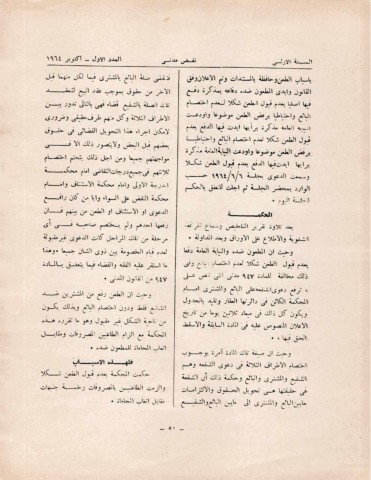 السنة الاولى
نقض مدنى
العدد الاول - اكتوبر ١٩٦٤
باسباب الطعن وحافظة بالمستندات وتم الاعلان وفق
القانون وابدى المطعون ضده دفاعه بمذكرة دفع
فيها اصليا بعدم قبول الطعن شكلا لعدم اختصام
البائع واحتياطيا برفض الطعن موضوعا واودعت
النيابة العامة مذكرة برأيها ايدت فيها الدفع بعدم
قبول الطعن شكلا لعدم اختصام البائع واحتياطيا
برفض الطعن موضوعا واودعت النيابة العامة مذكرة
برأيها ايدت فيها الدفع بعدم قبول الطعن شكلا
وسمعت الدعوى بجلسة ١٩٦٤/٦/٦ حسب
الوارد بمحضر الجلسة ثم اجلت للنطق بالحكم
لجلسة اليوم .
المحكمة
بعد تلاوة تقرير التلخيص وسماع المرافعة
الشفوية والاطلاع على الاوراق وبعد المداولة .
وحيث ان المطعون ضده والنيابة العامة دفعا
بعدم قبول الطعن شكلا لعدم اختصام البائع وفى
ذلك مخالفة للمادة ٩٤٧ مدنى التى تنص على
" ترفع دعوى الشفعة على البائع والمشترى امام
المحكمة الكائن فى دائرتها العقار وتقيد بالجدول
ويكون كل ذلك فى ميعاد ثلاثين يوما من تاريخ
الاعلان المنصوص عليه فى المادة السابقة والا سقط
الحق فيها " .
وحيث ان صفة تلك المادة آمرة بوجوب
اختصام الاطراف الثلاثة فى دعوى الشفعة وهم
الشفيع والمشترى والبائع وحكمة ذلك ان الشفعة
فى حقيقتها هى تحويل الحقوق والالتزامات
مابين البائع والمشترى الى مابين البائع والشفيع
فتنقضى صلة البائع بالمشترى فيما لكل منهما قبل
الآخر من حقوق بموجب عقد البيع لتنعقد
تلك الصلة بالشفيع قضاء فهى بالتالى تدور بين
الاطراف الثلاثة وكل منهم طرف حقيقى وضرورى
لامكان اجراء هذا التحويل القضائى فى حقوق
بعضهم قبل البعض ولايتصور ذلك الا فى
مواجهتهم جميعا ومن اجل ذلك يتحتم اختصام
ثلاثتهم فى جميع درجات التقاضى امام محكمة
الدرجة الاولى وامام محكمة الاستئناف وامام
محكمة النقض على السواء وايا من كان رافع
الدعوى او الاستئناف او الطعن من بينهم فان
رفعها احدهم ولم يختصم صاحبه فى أى
مرحلة من تلك المراحل كانت الدعوى غير مقبولة
لعدم قيام الخصومة بين ذوى الشأن جميعا وهذا
ما استقر عليه الفقه والقضاء فيما يتعلق بالمادة
٩٤٧ من القانون المدنى .
وحيث ان الطعن رفع من المشترين ضد
الشافع فقط ودون اختصام البائع وبذلك يكون
من ناحية الشكل غير مقبول وهو ما تقرره هذه
المحكمة مع الزام الطاعنين بالمصروفات ومقابل
اتعاب المحاماة للمطعون ضده .
فلهذه الاسباب
حكمت المحكمة بعدم قبول الطعن شكلا
والزمت الطاعنين بالمصروفات وخمسة جنيهات
مقابل اتعاب المحاماة .
- ٥٠ -